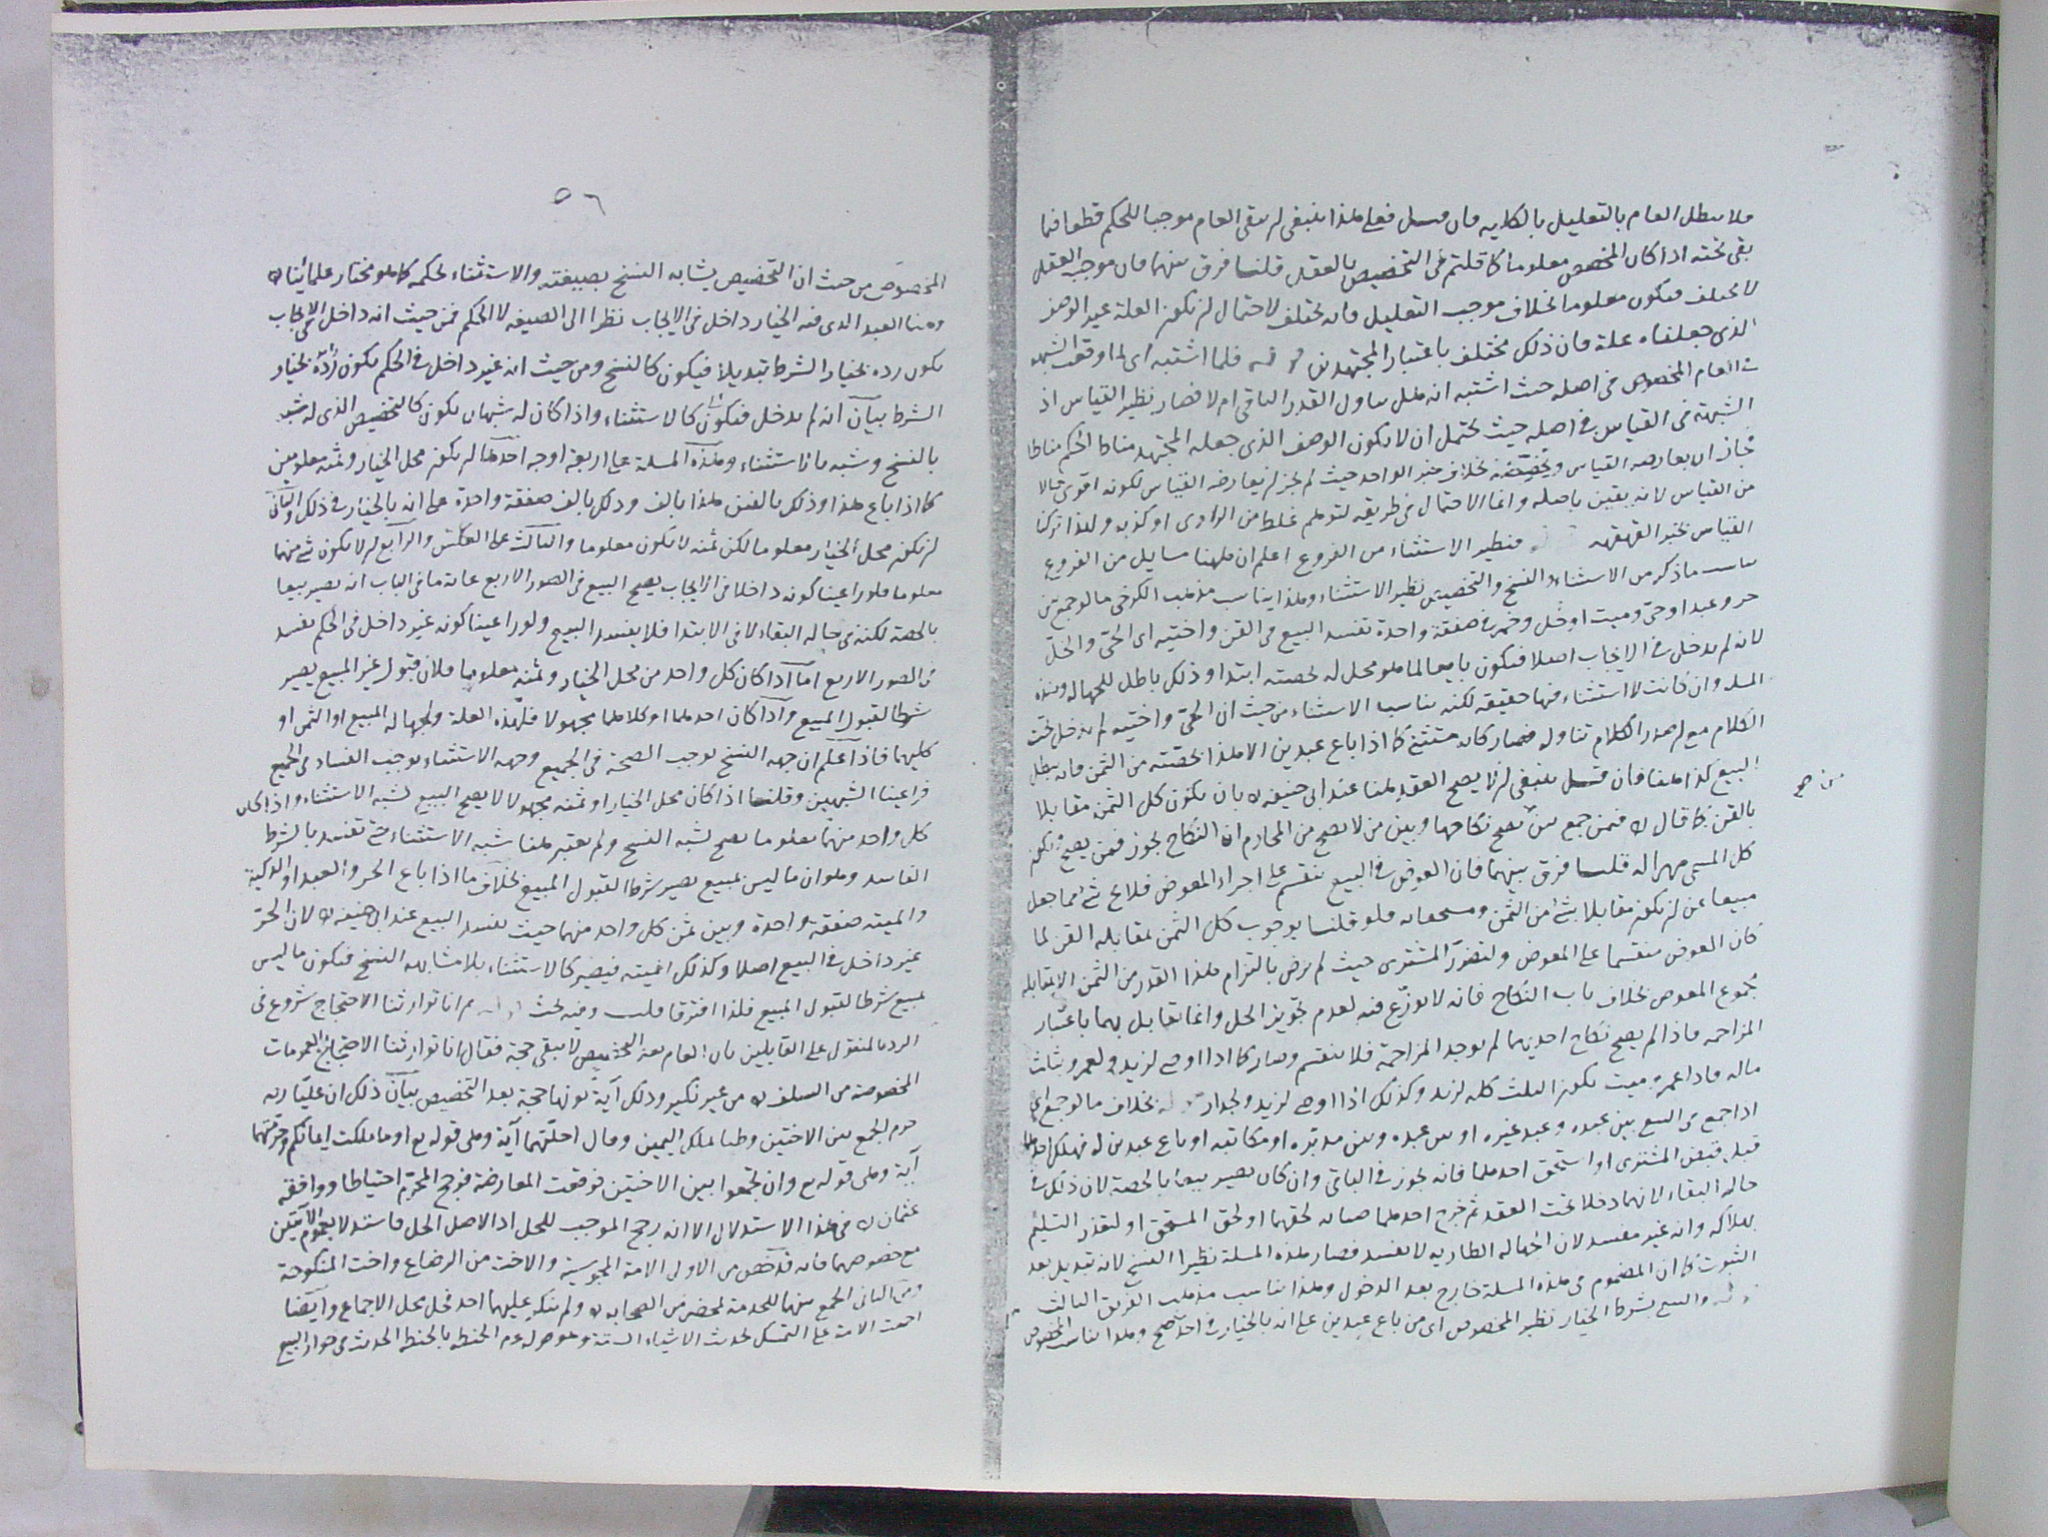 فلا يبطل العام بالتعليل بالكلية فان قيل فعلى هذا ينبغى ان يبقى العام موجبا للحكم قطعا فيما
بقى تحته اذا كان المخصص معلوما كما قلتم فى التخصيص بالعقل قلنا فرق بينهما فان موجب العقل
لا يختلف فيكون معلوما بخلاف موجب التعليل فانه يختلف لاحتمال ان يكون العلة غير الوصف
الذى جعلناه علة فان ذلك مختلف باعتبار المجتهدين فلما اشتبه اى لما اوقعت الشبهة
فى العام المخصوص فى اصله حيث اشتبه انه هل يتناول القدر الباقى ام لا فصار نظير القياس اذ
الشبهة فى القياس فى اصله حيث يحتمل ان لا يكون الوصف الذى جعله المجتهد مناط الحكم مناطا
فجاز ان يعارضه القياس ويخصصه بخلاف خبر الواحد حيث لم يجز ان يعارضه القياس لكونه اقوى حالا
من القياس لانه يقين باصله وانما الاحتمال فى طريقه لتوهم غلط من الراوى او كذبه ولهذا تركنا
القياس بخبر القهقهة فنظير الاستثناء من الفروع اعلم ان ههنا مسايل من الفروع
يناسب ما ذكر من الاستثناء والنسخ والتخصيص نظير الاستثناء وهذا يناسب مذهب الكرخى ما لو جمع بين
حر وعبد او حى وميت او خل وخمر فى صفقة واحدة تفسد البيع فى القن واختيه اى الحى والخل
لانه لم يدخل فى الايجاب اصلا فيكون بايعا لما هو محل له بحصته ابتدا وذلك باطل للجهالة وهذه
المسلة وان كانت لا استثناء فيها حقيقة لكنه يناسب الاستثناء من حيث ان الحى واختيه لم يدخل تحت
الكلام مع ان صدر الكلام تناوله فصار كانه مستثنى كما اذا باع عبدين الا هذا بحصته من الثمن فانه يبطل
البيع كذا ههنا فان قيل ينبغى ان لا يصح العقد ههنا عند ابى حنيفة بان يكون كل الثمن مقابلا
من صح
بالقن كما قال فيمن جمع بين يصح نكاحها وبين من لا يصح من المحارم ان النكاح يجوز فمن يصح ويكون
كل المسمى مهرا له قلنا فرق بينهما فان العوض فى البيع ينقسم على اجزاء المعوض فلا شئ مما جعل
مبيعا عن ان يكون مقابلا بشئ من الثمن فلو قلنا بوجوب كل الثمن بمقابلة القن لما
كان العوض منقسما على المعوض ولتضرر المشترى حيث لم يرض بالتزام هذا القدر من الثمن الا بمقابلة
مجموع المعوض بخلاف باب النكاح فانه لا توزع فيه لعدم تجويز الحل وانما يقابل بهما باعتبار
المزاحمة فاذا لم يصح نكاح احديهما لم يوجد المزاحمة فلا ينقسم وصار كما اذا اوصى لزيد ولعمرو بثلث
ماله فاذا عمرو ميت يكون الثلث كله لزيد وكذلك اذا اوصى لزيد ولجدار بخلاف ما لو جمع اى
اذا جمع فى البيع بين عبده وعبد غيره او بين عبده وبين مدبره او مكاتبه او باع عبدين له فهلك احدهما
قبل قبض المشترى او استحق احدهما فانه يجوز فى الباقى وان كان يصير بيعا بالحصة لان ذلك فى
حالة البقاء لانهما دخلا تحت العقد ثم خرج احدهما صيانة لحقهما او لحق المستحق او لتعذر التسليم
بهلاكه وانه غير مفسد لان الجهالة الطارية لا تفسد فصار هذه المسلة نظيرا النسخ لانه تبديل بعد
الثبوت كما ان المضموم فى هذه المسلة خارج بعد الدخول وهذا يناسب مذهب الفريق الثالث
والبيع بشرط الخيار نظير المخصوص اى من باع عبدين على انه بالخيار فى احدهما صح وهذا يناسب المخصوص
٥٦
المخصوص من حيث ان التخصيص يشابه النسخ بصيغته والاستثناء بحكمه كما هو مختار علمائنا
وهنا العبد الذى فيه الخيار داخل فى الايجاب نظرا الى الصيغة لا الحكم فمن حيث انه داخل فى الايجاب
يكون رده بخيار الشرط تبديلا فيكون كالنسخ ومن حيث انه غير داخل فى الحكم يكون رده بخيار
الشرط بيان انه لم يدخل فيكون كالاستثناء واذا كان له شبهان يكون كالتخصيص الذى له شبه
بالنسخ وشبه بالاستثناء وهذه المسلة على اربعة اوجه احدها ان يكون محل الخيار وثمنه معلومين
كما اذا باع هذا وذلك بالفين هذا بالف وذلك بالف صفقة واحدة على انه بالخيار فى ذلك والثانى
ان يكون محل الخيار معلوما لكن ثمنه لا يكون معلوما والثالث على العكس والرابع ان لا يكون شئ منهما
معلوما فلو راعينا كونه داخلا فى الايجاب يصح البيع فى الصور الاربع غاية ما فى الباب انه يصير بيعا
بالحصة لكنه فى حالة البقاء لا فى الابتدا فلا يفسد البيع ولو راعينا كونه غير داخل فى الحكم يفسد
فى الصور الاربع اما اذا كان كل واحد من محل الخيار وثمنه معلوما فلان قبول غير المبيع يصير
شرطا لقبول المبيع واذا كان احدهما او كلاهما مجهولا فلهذه العلة ولجهالة المبيع او الثمن او
كليهما فاذا علم ان جهة النسخ يوجب الصحة فى الجميع وجهة الاستثناء يوجب الفساد فى الجميع
فراعينا الشبهين وقلنا اذا كان محل الخيار او ثمنه مجهولا لا يصح البيع لشبه الاستثناء واذا كان
كل واحد منهما معلوما يصح لشبه النسخ ولم يعتبر ههنا شبه الاستثناء حتى تفسد بالشرط
الفاسد وهو ان ما ليس بمبيع يصير شرطا لقبول المبيع بخلاف ما اذا باع الحر والعبد او الذكية
والميتة صفقة واحدة وبين ثمن كل واحد منهما حيث يفسد البيع عند ابى حنيفة لان الحر
غير داخل فى البيع اصلا وكذلك الميتة فيصير كالاستثناء بلا مشابهة النسخ فيكون ما ليس
بمبيع شرطا لقبول المبيع فلذا افترقا قلت وفيه بحث ثم انا توارثنا الاحتجاج شروع فى
الرد المنقول على القايلين بان العام بعد التخصيص لا يبقى حجة فقال انا توارثنا الاحتجاج بالعمومات
المخصوصة من السلف من غير نكير وذلك آية كونها حجة بعد التخصيص بيان ذلك ان عليا رضه
حرم الجمع بين الاختين وطيا بملك اليمين وقال احلتهما آية وهى قوله تع او ما ملكت ايمانكم وحرمتهما
آية وهى قوله تع وان تجمعوا بين الاختين فوقعت المعارضة فرجح المحرم احتياطا ووافقه
عثمان فى هذا الاستدلال الا انه رجح الموجب للحل اذ الاصل الحل فاستدلا بعموم الآيتين
مع خصوصهما فانه قد خص من الاولى الامة المجوسية والاخت من الرضاع واخت المنكوحة
ومن الثانى الجمع بينهما للخدمة بمحضر من الصحابة ولم ينكر عليهما احد فحل محل الاجماع وايضا
اجمعت الامة على التمسك بحديث الاشياء الستة وهو قوله عم الحنطة بالحنطة الحديث فى جواز البيع